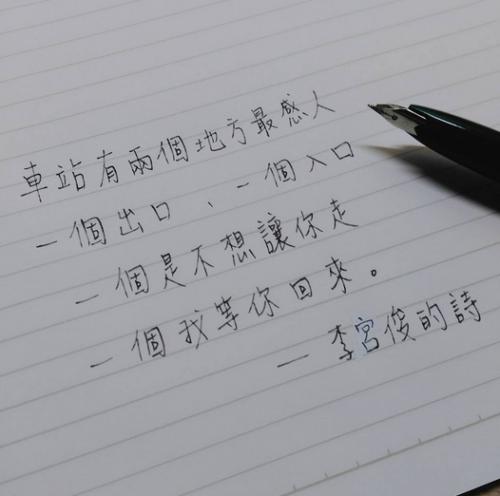 車站有兩個地方最感人
一個出口、一個入口
一個是不想讓你走
一個我等你回來。
—李宮俊的詩